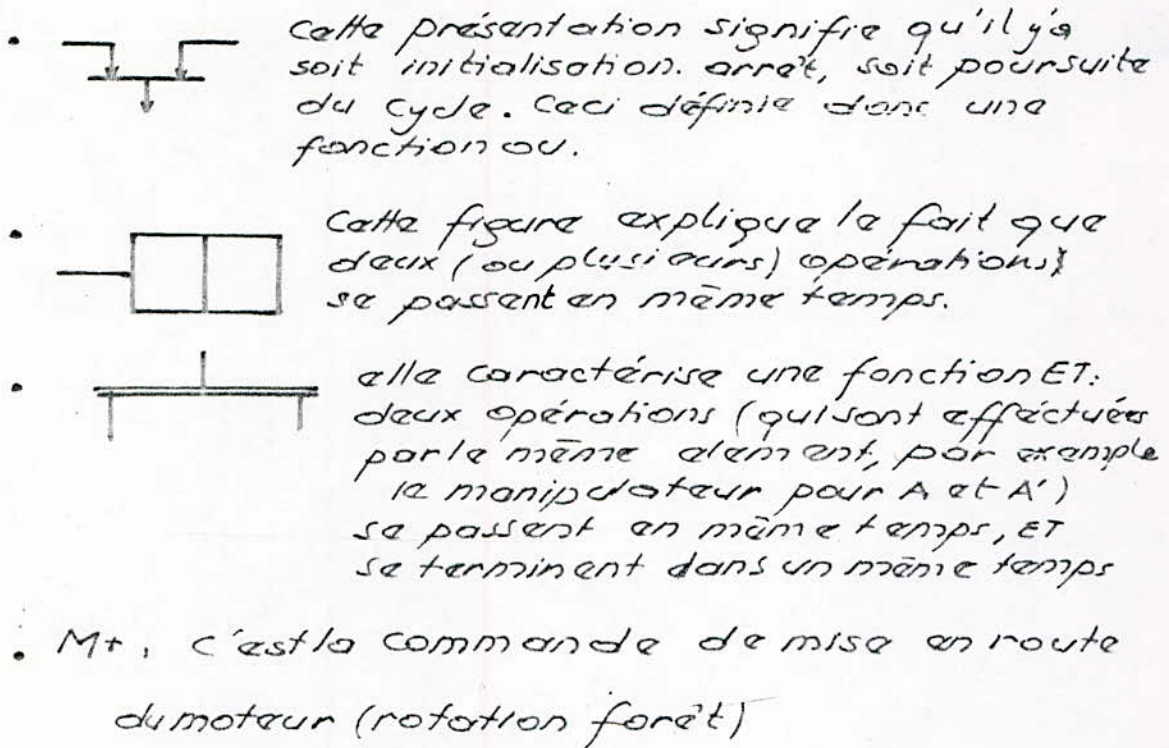 • cette présentation signifie qu'il y'a
soit initialisation. arrêt, soit poursuite
du cycle. Ceci définie donc une
fonction ou.
• Cette figure explique le fait que
deux (ou plusieurs) opérations)
se passent en même temps.
• elle caractérise une fonction ET:
deux opérations (qui sont efféctuées
par le même element, par exemple
le manipulateur pour A et A')
se passent en même temps, ET
se terminent dans un même temps
. M+, c'est la commande de mise en route
du moteur (rotation forêt)